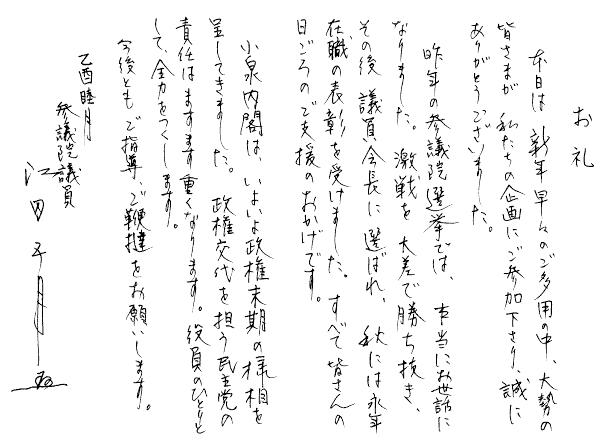 お礼
本日は 新年早々のご多用の中、大勢の
皆さまが 私たちの企画にご参加下さり、誠に
ありがとうございました。
昨年の参議院選挙では、本当にお世話に
なりました。激戦を 大差で勝ち抜き、
その後 議員会長に選ばれ、秋には永年
在職の表彰を受けました。すべて皆さんの
日ごろのご支援のおかげです。
小泉内閣は いよいよ政権末期の様相を
呈してきました。政権交代を担う民主党の
責任はますます重くなります。役員のひとりと
して、全力をつくします。
今後とも ご指導 ご鞭撻をお願いします。
乙酉睦月
参議院議員
江田五月